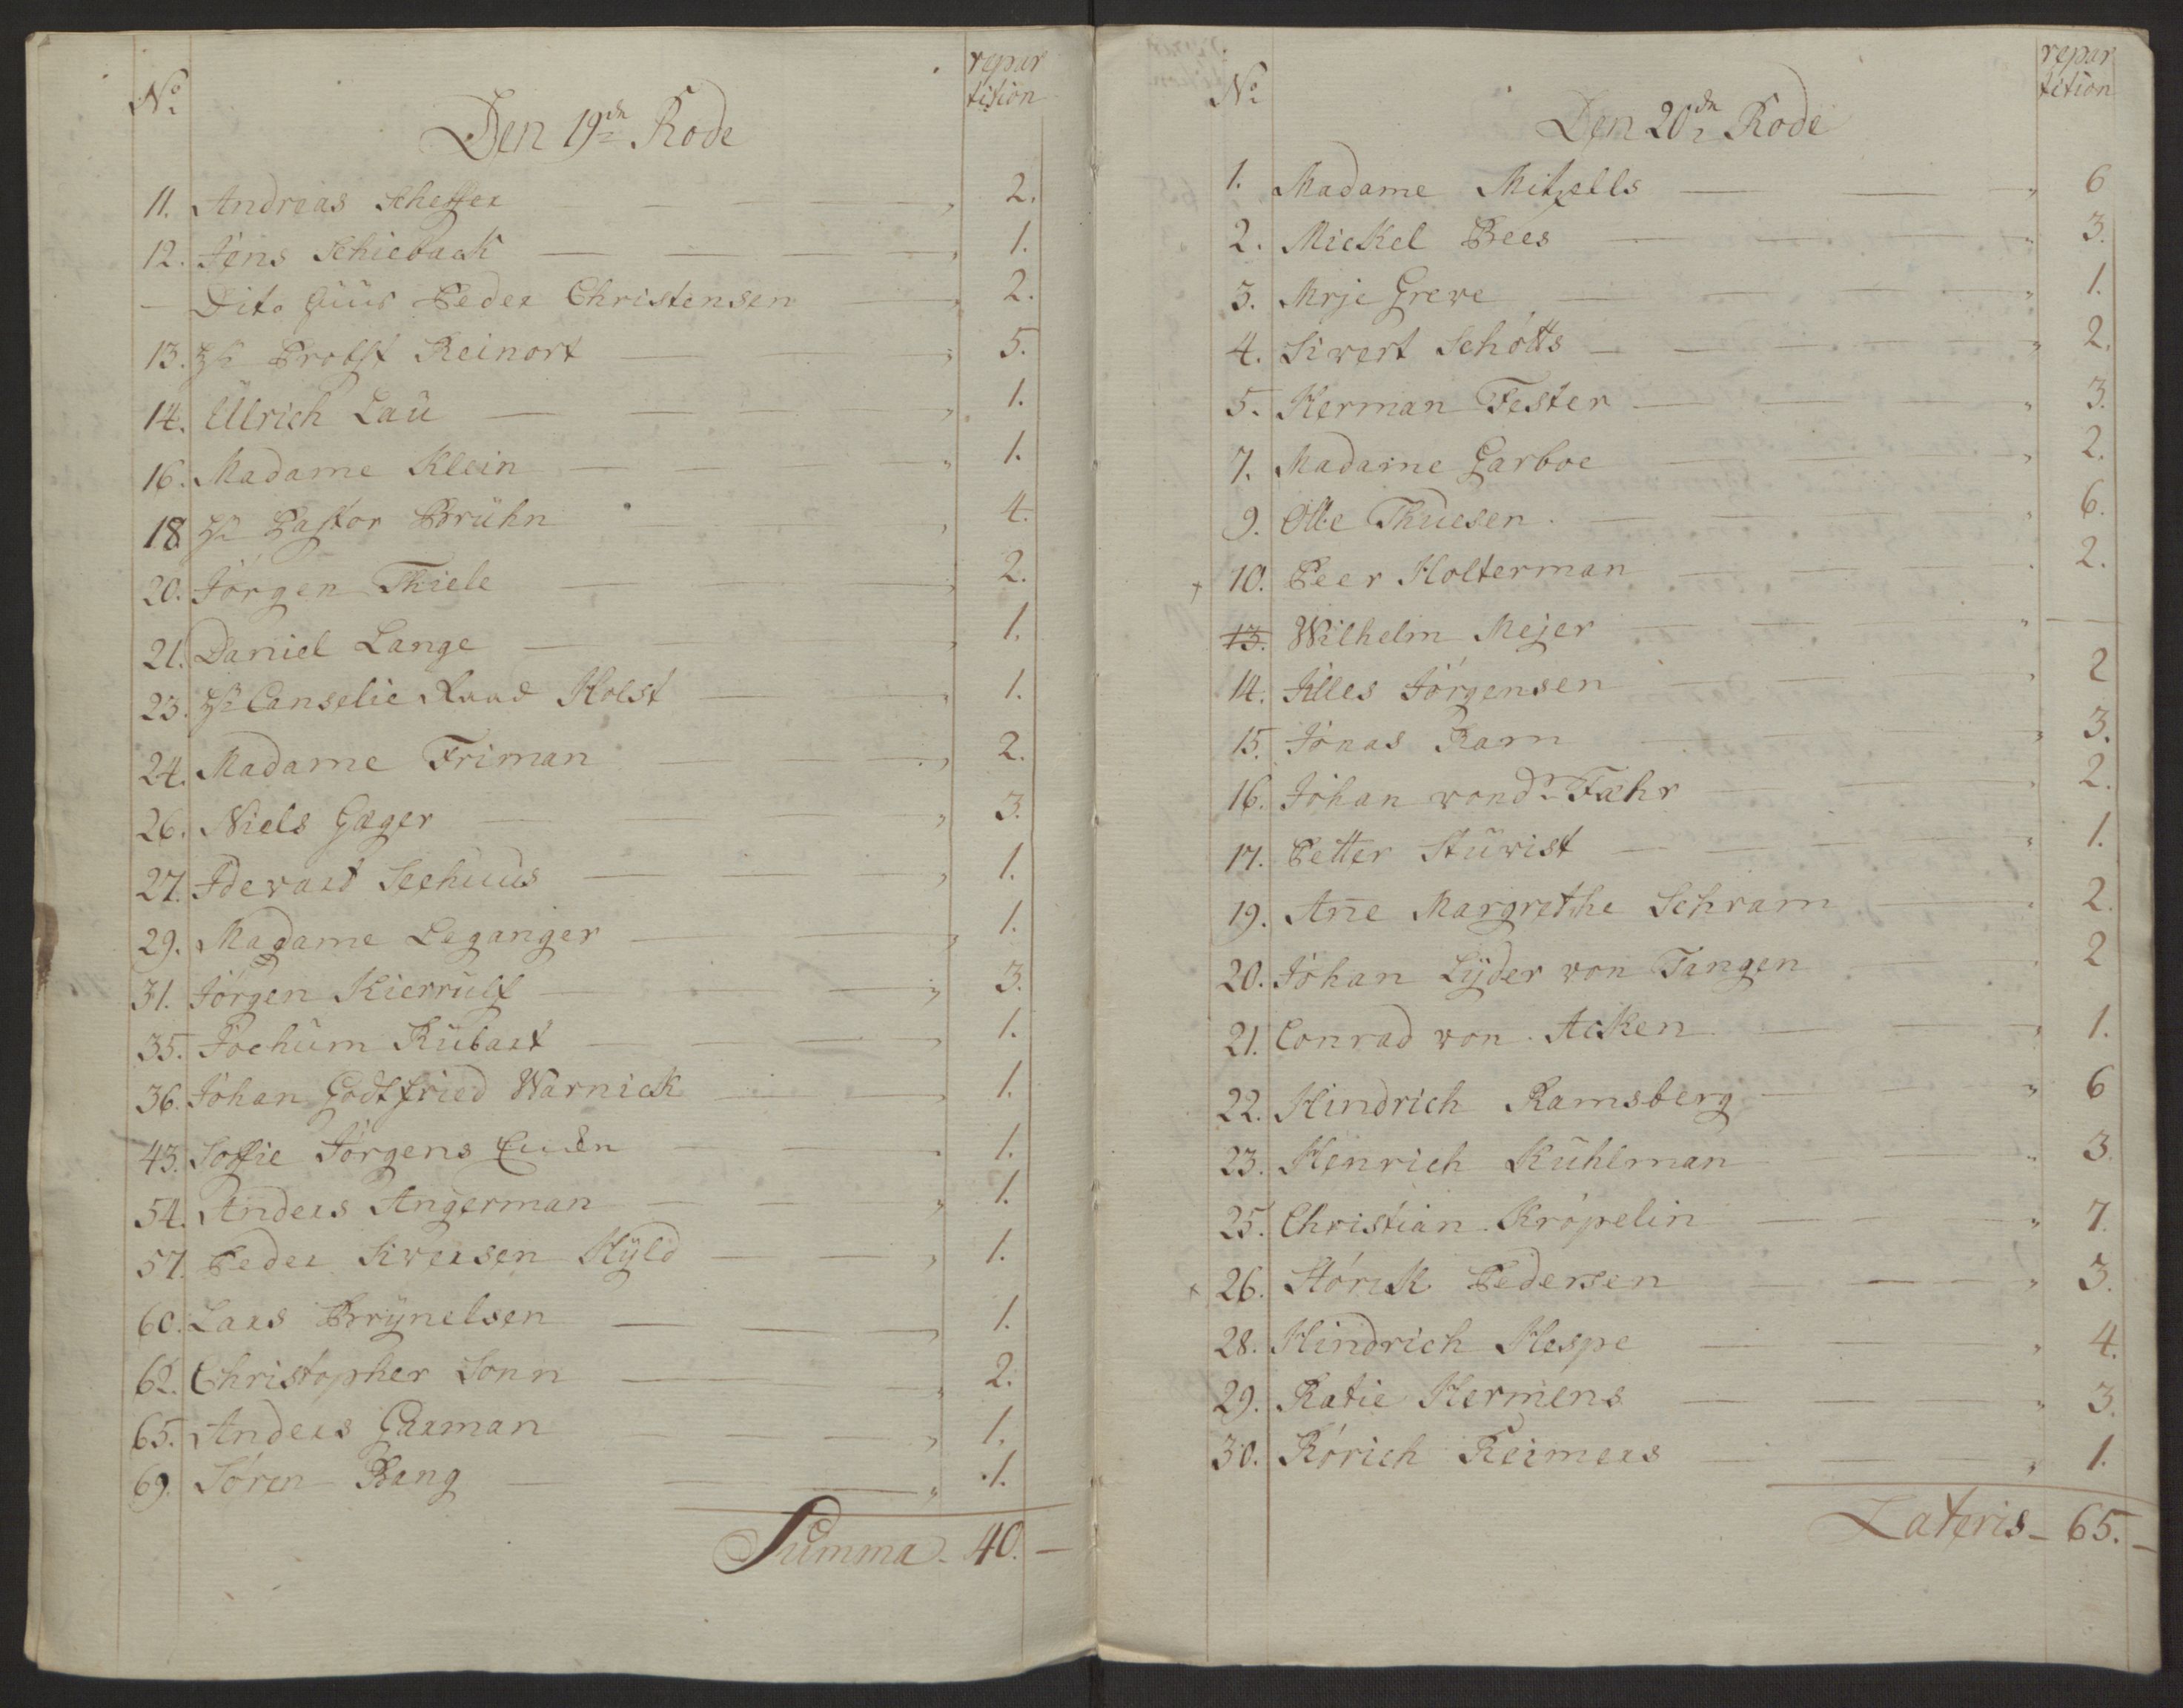 No
repar
tition
Den 19de Rode
11. Andreas Scheffer 2.
12. Jens Schieback 1.
- Dito Huus Peder Christensen 2.
13. Hr Probst Reinort 5.
14. Ullrich Lau 1.
16. Madame Klein 1.
18 Hr Pastor Brühn 4.
20. Jörgen Thiele 2.
21. Daniel Lange 1.
23. Hr Canselie Raad Holst 1.
24. Madame Friman 2.
26. Niels Gæger 3.
27. Idevart Seehuus 1.
29. Madame Leganger 1.
31. Jörgen Kierrulf 3.
35. Jochum Rübart 1.
36. Johan Godtfried Warnick 1.
43. Soffie Jörgens 1.
54. Anders Angerman 1.
57. Peder Siversen Hÿld 1.
60. Lars Brÿnelsen 1.
62. Christopher Sonn 2.
65. Anders Garman 1.
69. Sören Bang 1.
Summa 40.
No
repar
tition
Den 20de Rode
1. Madame Mitzells 6
2. Mickel Bees 3.
3. Mrje Greve 1.
4. Sivert Schótts 2.
5. Herman Fester 3.
7. Madame Garboe 2.
9. Olle Thuesen 6.
10. Peer Holterman 2.
13. Wilhelm Mejer —
14. Jilles Jörgensen 2
15. Jonas Ram 3.
16. Johan vond. Fæhr 2.
17. Petter Stüvist 1.
19. Ane Margrethe Schram 2.
20. Johan Lÿder von Tangen 2
21. Conrad von Acken 1.
22. Hindrich Ramsberg 6
23. Henrich Kühlman 3.
25. Christian Krópelin 7.
26. Störck Pedersen 3.
28. Hindrich Hespe 4.
29. Ratie Hermens 3.
30. Rórich Reimers 1.
Lateris 65.